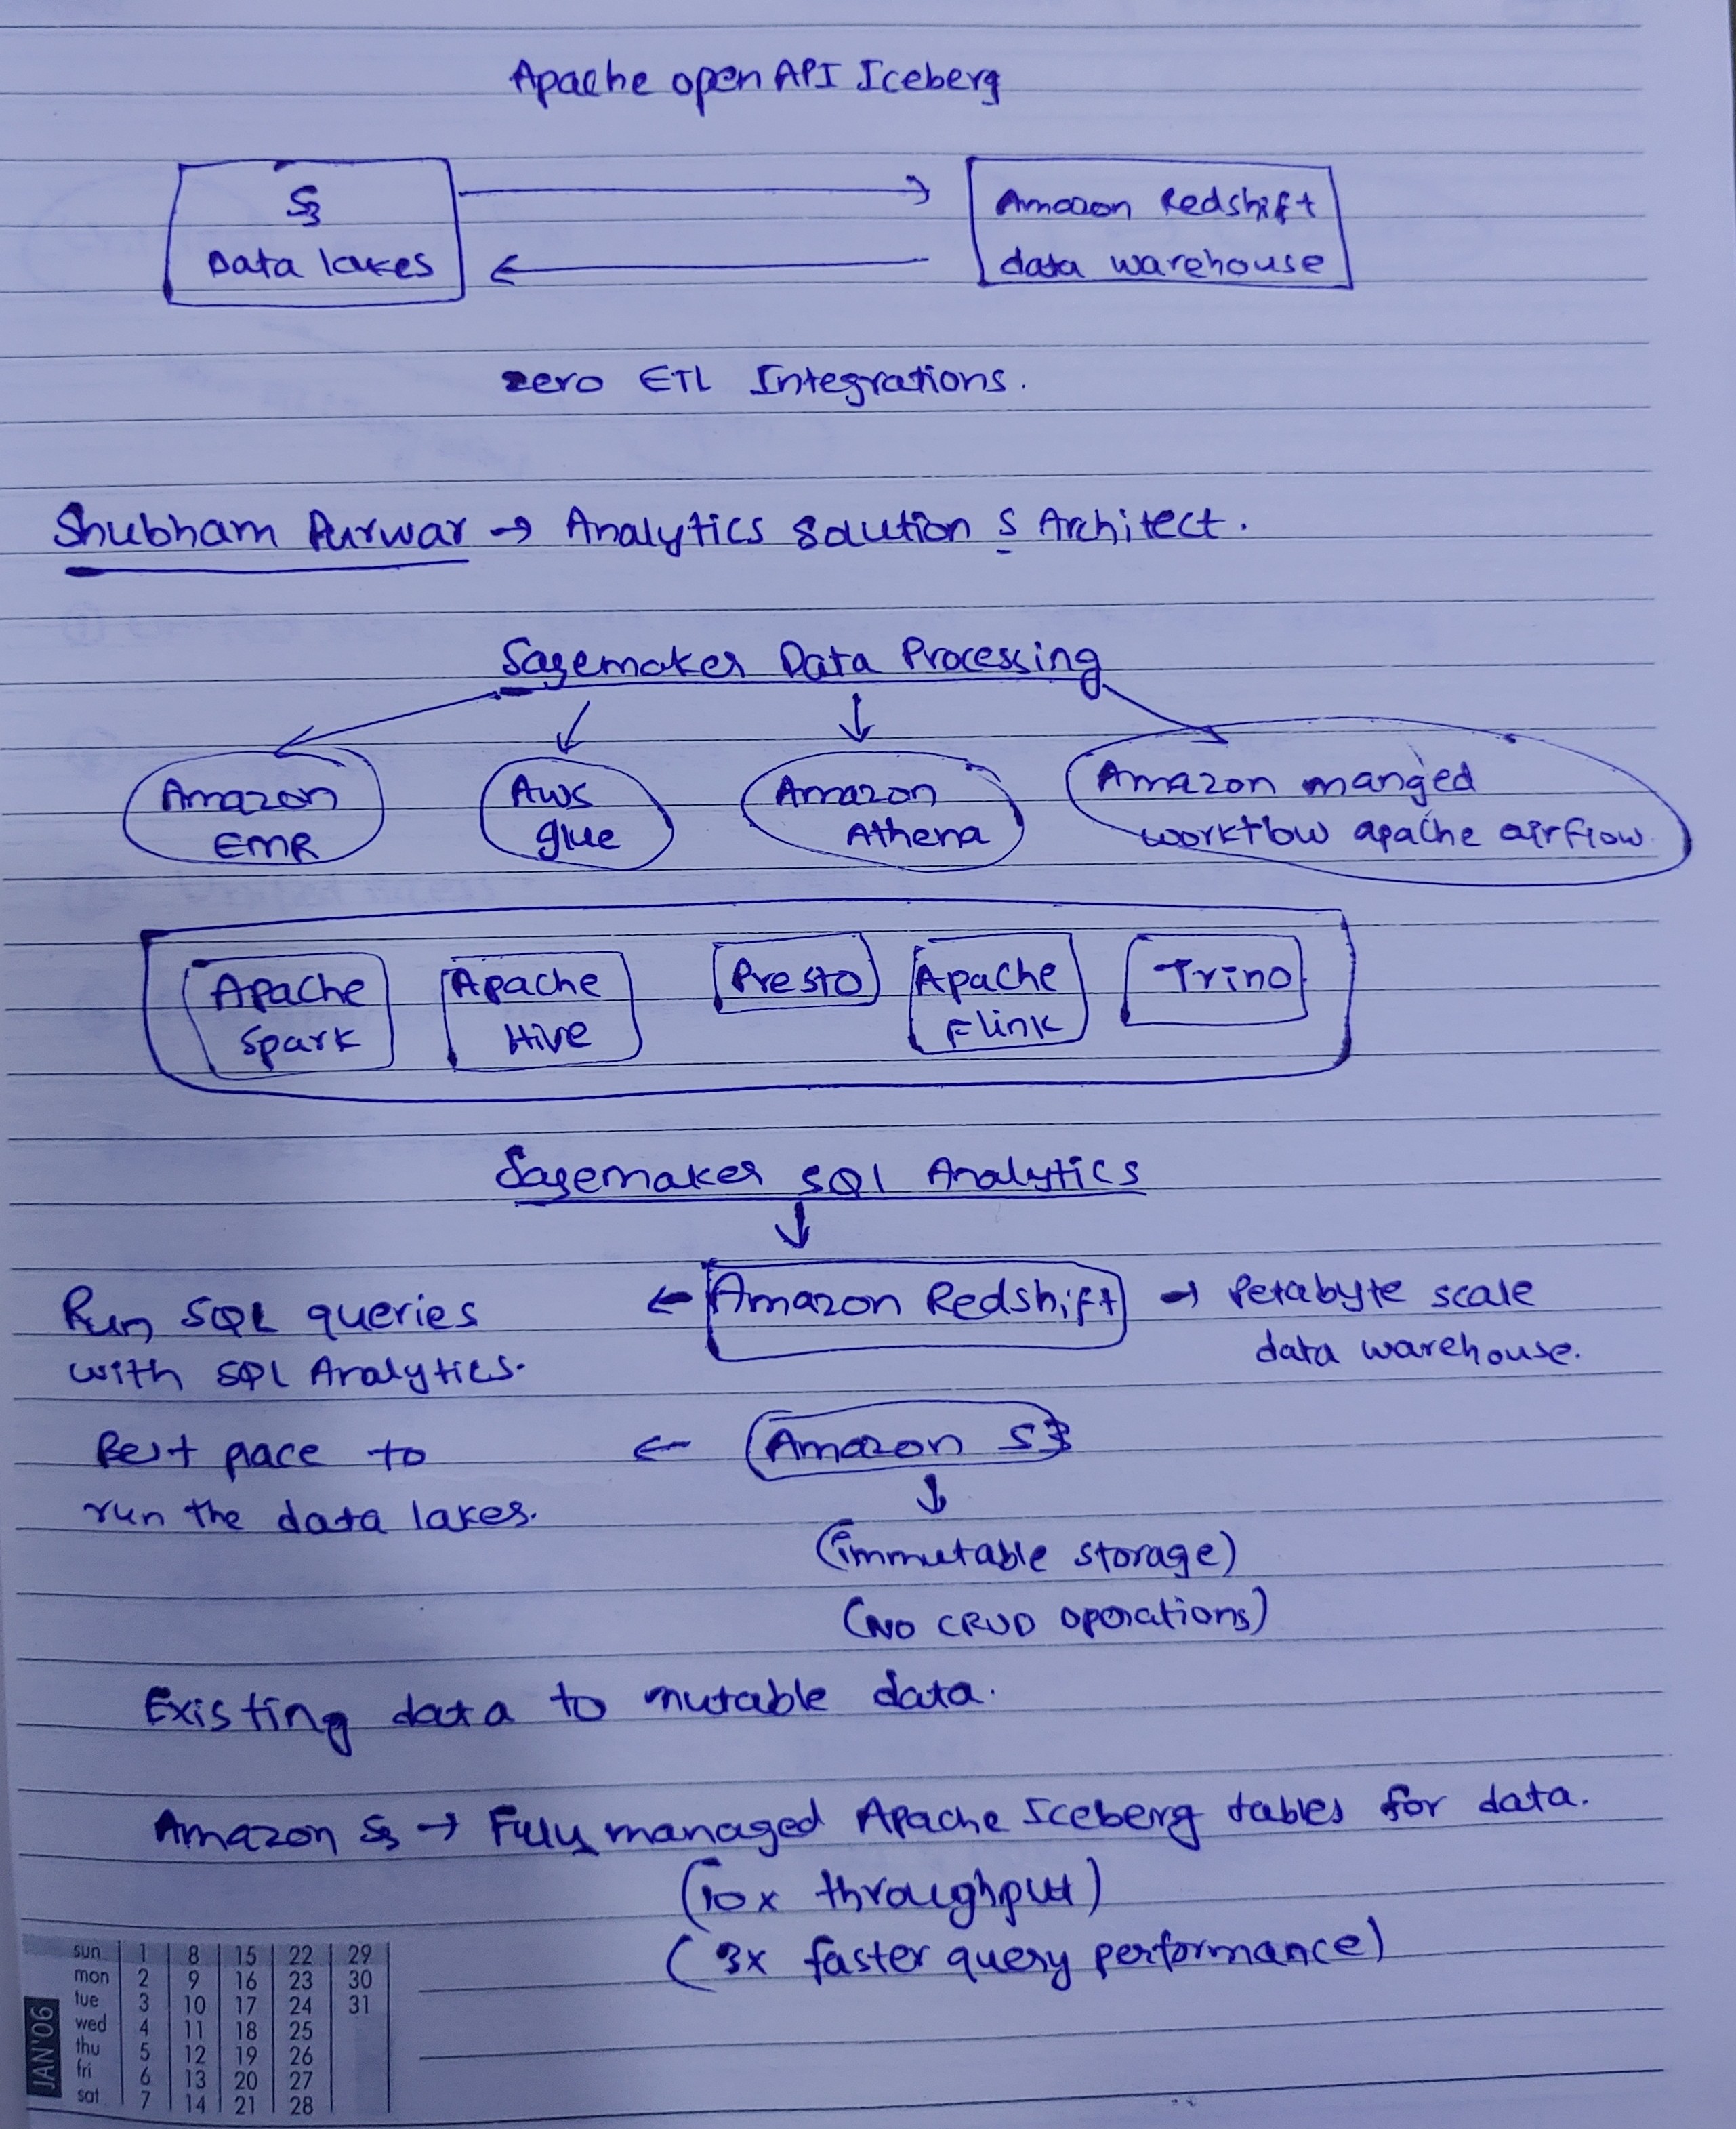 Apache open API Iceberg
S3
Data lakes
Amazon Redshift
data warehouse
zero ETL Integrations.
Shubham Purwar → Analytics Solution S Architect.
Sagemaker Data Processing
Amazon
EMR
Aws
glue
Amazon
Athena
Amazon manged
workflow apache airflow
Apache
Spark
Apache
Hive
Presto
Apache
Flink
Trino
Sagemaker SQl Analytics
↓
Run SQL queries
with SQl Analytics.
← Amazon Redshift → Petabyte scale
data warehouse.
Best pace to
run the data lakes.
← Amazon S3
↓
(immutable storage)
(NO CRUD operations)
Existing data to mutable data.
Amazon S3 → Fully managed Apache Iceberg tables for data.
(10x throughput)
(3x faster query performance)
JAN'06
sun 1 8 15 22 29
mon 2 9 16 23 30
tue 3 10 17 24 31
wed 4 11 18 25
thu 5 12 19 26
fri 6 13 20 27
sat 7 14 21 28